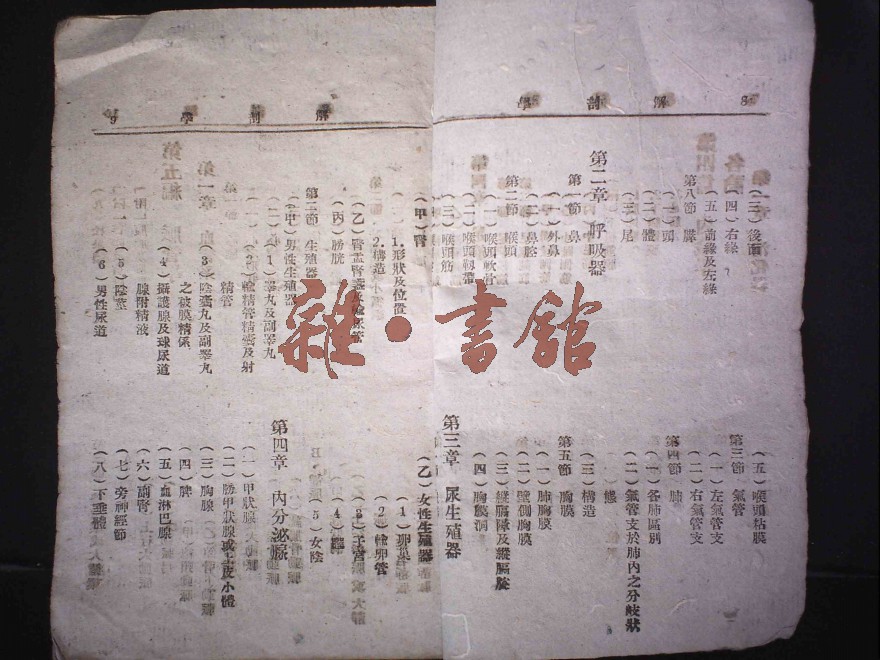 8 解剖學
(三)後面
(四)右緣
(五)前緣及左緣
第八節 脾
(一)頭
(二)體
(三)尾
第二章 呼吸器
第一節 鼻
(一)外鼻
(二)鼻腔
第二節 喉頭
(一)喉頭軟骨
(二)喉頭靱帶
(三)喉頭筋
(五)喉頭粘膜
第三節 氣管
(一)左氣管支
(二)右氣管支
第四節 肺
(一)各肺區別
(二)氣管支於肺內之分歧狀
態
(三)構造
第五節 胸膜
(一)肺胸膜
(二)壁側胸膜
(三)縱膈障及縱膈腔
(四)胸膜洞
第三章 尿生殖器
解剖學 9
(甲)腎
1.形狀及位置
2.構造
(乙)腎盂腎盞及輸尿管
(丙)膀胱
第二節 生殖器
(甲)男性生殖器
(1)睪丸及副睪丸
(2)輸精管精囊及射
精管
(3)陰囊丸及副睪丸
之被膜精係
(4)攝護腺及球尿道
腺附精液
(5)陰莖
(6)男性尿道
(乙)女性生殖器
(1)卵巢
(2)輸卵管
(3)子宮
(4)膣
(5)女陰
第四章 內分泌腺
(一)甲狀腺
(二)旁甲狀腺或上皮小體
(三)胸腺
(四)脾
(五)血淋巴腺
(六)副腎
(七)旁神經節
(八)下垂體
雜·書館